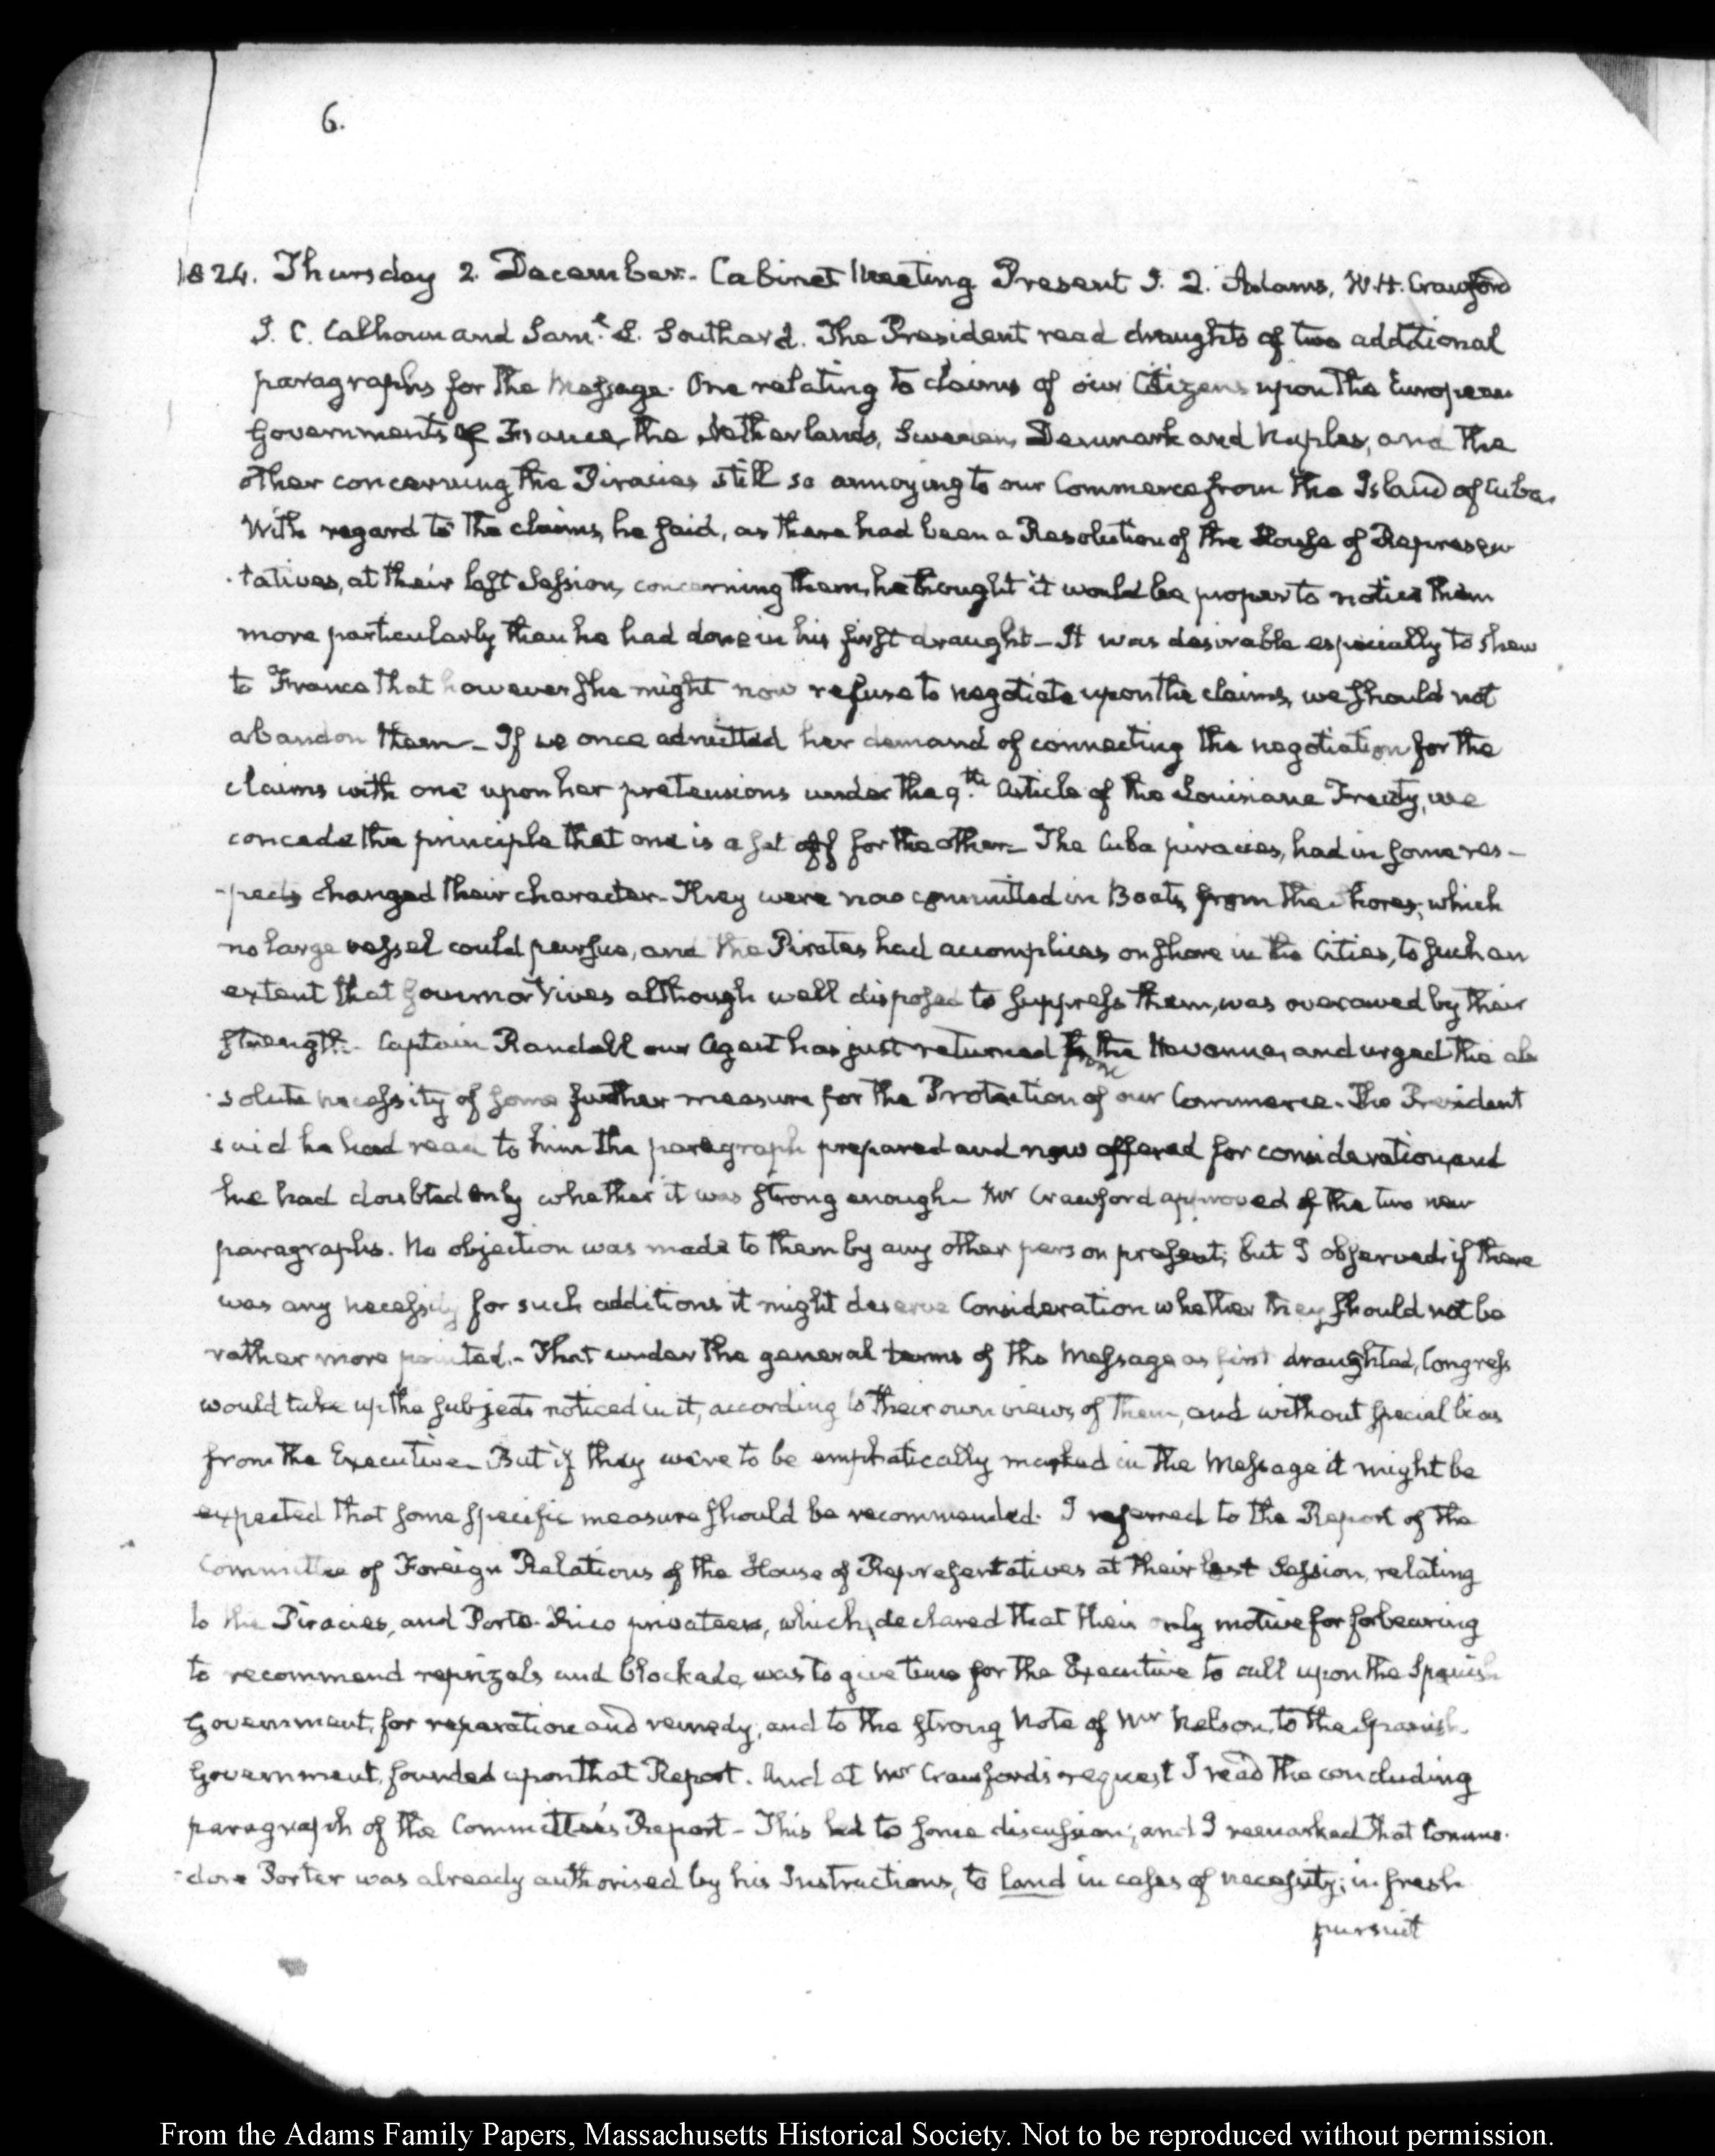 6.
1824. Thursday 2. December. Cabinet Meeting Present J. Q. Adams, W. H. Crawford
J. C. Calhoun and Saml. L. Southard. The President read draughts of two additional
paragraphs for the Message. One relating to claims of our Citizens upon the European
Governments of France, the Netherlands, Sweden, Denmark and Naples, and the
other concerning the Piracies still so annoying to our Commerce from the Island of Cuba.
With regard to the claims, he said, as there had been a Resolution of the House of Represen
-tatives, at their last Session, concerning them, he thought it would be proper to notice them
more particularly than he had done in his first draught – It was desirable especially to shew
to France that however she might now refuse to negotiate upon the claims, we should not
abandon them – If we once admitted her demand of connecting the negotiation for the
claims with one upon her pretensions under the 9.th Article of the Louisiana Treaty, we
concede the principle that one is a set off for the other – The Cuba piracies, had in some res-
-pects changed their character – They were now committed in Boats, from the shores, which
no large vessel could pursue, and the Pirates had accomplices on shore in the Cities, to such an
extent that Governor Vives although well disposed to suppress them, was overawed by their
strength. Captain Randall our Agent has just returned from the Havanna, and urged the ab
-solute necessity of some further measure for the Protection of our Commerce. The President
said he had read to him the paragraph prepared and now offered for consideration, and
he had doubted only whether it was strong enough – Mr Crawford approved of the two new
paragraphs. No objection was made to them by any other person present; but I observed, if there
was any necessity for such additions it might deserve Consideration whether they should not be
rather more pointed. – That under the general terms of the Message as first draughted, Congress
would take up the subjects noticed in it, according to their own views of them, and without special bias
from the Executive – But if they were to be emphatically marked in the Message it might be
expected that some specific measure should be recommended. I referred to the Report of the
Committee of Foreign Relations of the House of Representatives at their last Session, relating
to the Piracies, and Porto-Rico privateers, which, declared that their only motive for forbearing
to recommend reprizals and blockade, was to give time for the Executive to call upon the Spanish
Government, for reparation and remedy; and to the strong Note of Mr Nelson, to the Spanish
Government, founded upon that Report. And at Mr Crawford's request I read the concluding
paragraph of the Committee's Report – This led to some discussion; and I remarked that Commo-
-dore Porter was already authorised by his Instructions, to land in cases of necessity; in fresh
pursuit
From the Adams Family Papers, Massachusetts Historical Society. Not to be reproduced without permission.